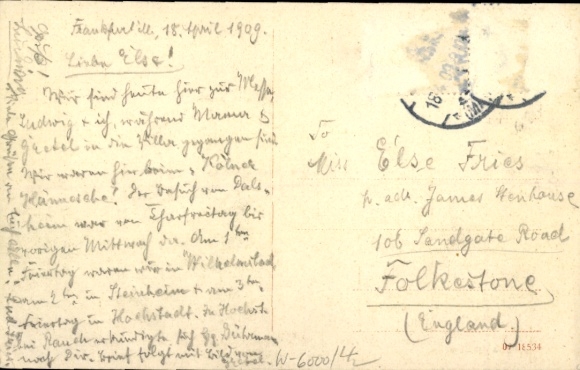 Frankfurt, 18. April 1909.
Liebe Else!
Wir sind heute hier zur Messe,
Ludwig & ich, während Mama &
Gretel in die Villa gegangen sind.
Wir waren hier beim "Kölner
Hännesche". Der Besuch von Dals-
heim war von Charfreitag bis
vorigen Mittwoch da. Am 1ten
Feiertag waren wir in Wilhelmsbad
am 2ten in Steinheim & am 3ten
Feiertag in Hochstadt. In Hochst.
bei Rauch erkundigte sich
nach Dir. Brief folgt mit
To
Miss Else Fries
p. adr. James Stenhouse
106 Sandgate Road
Folkestone
(England)
18
W-6000/42
07 18534